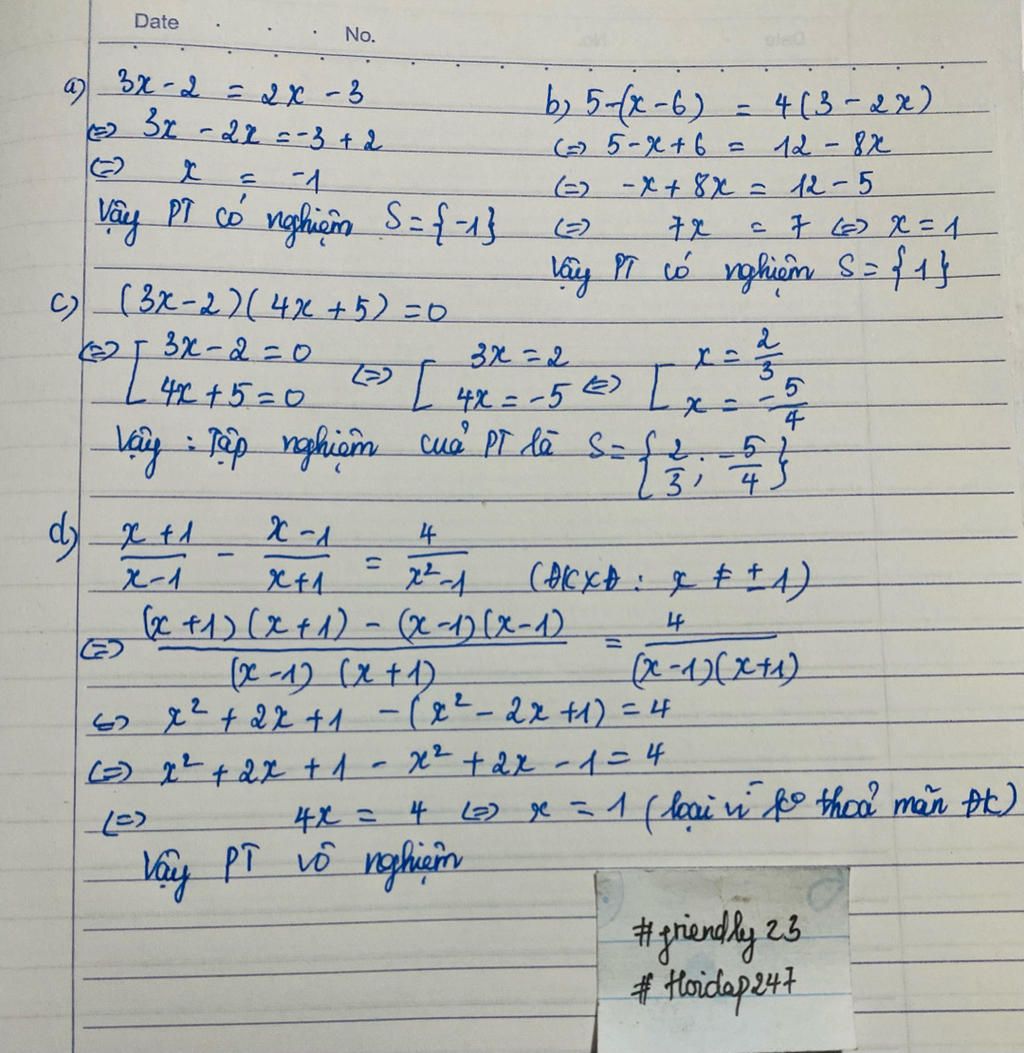 Date No.
a) 3x - 2 = 2x - 3
⇔ 3x - 2x = -3 + 2
⇔ x = -1
Vậy PT có nghiệm S = {-1}
b) 5 - (x - 6) = 4(3 - 2x)
⇔ 5 - x + 6 = 12 - 8x
⇔ -x + 8x = 12 - 5
⇔ 7x = 7 ⇔ x = 1
Vậy PT có nghiệm S = {1}
c) (3x - 2)(4x + 5) = 0
⇔ [ 3x - 2 = 0 ⇔ [ 3x = 2 ⇔ [ x = 2/3
4x + 5 = 0 4x = -5 x = -5/4
Vậy : Tập nghiệm của PT là S = {2/3 ; -5/4}
d) (x + 1)/(x - 1) - (x - 1)/(x + 1) = 4/(x² - 1) (ĐKXĐ : x ≠ ± 1)
⇔ ((x + 1)(x + 1) - (x - 1)(x - 1))/((x - 1)(x + 1)) = 4/((x - 1)(x + 1))
⇔ x² + 2x + 1 - (x² - 2x + 1) = 4
⇔ x² + 2x + 1 - x² + 2x - 1 = 4
⇔ 4x = 4 ⇔ x = 1 (loại vì ko thoả mãn ĐK)
Vậy PT vô nghiệm
# friendly 23
# Hoidap247